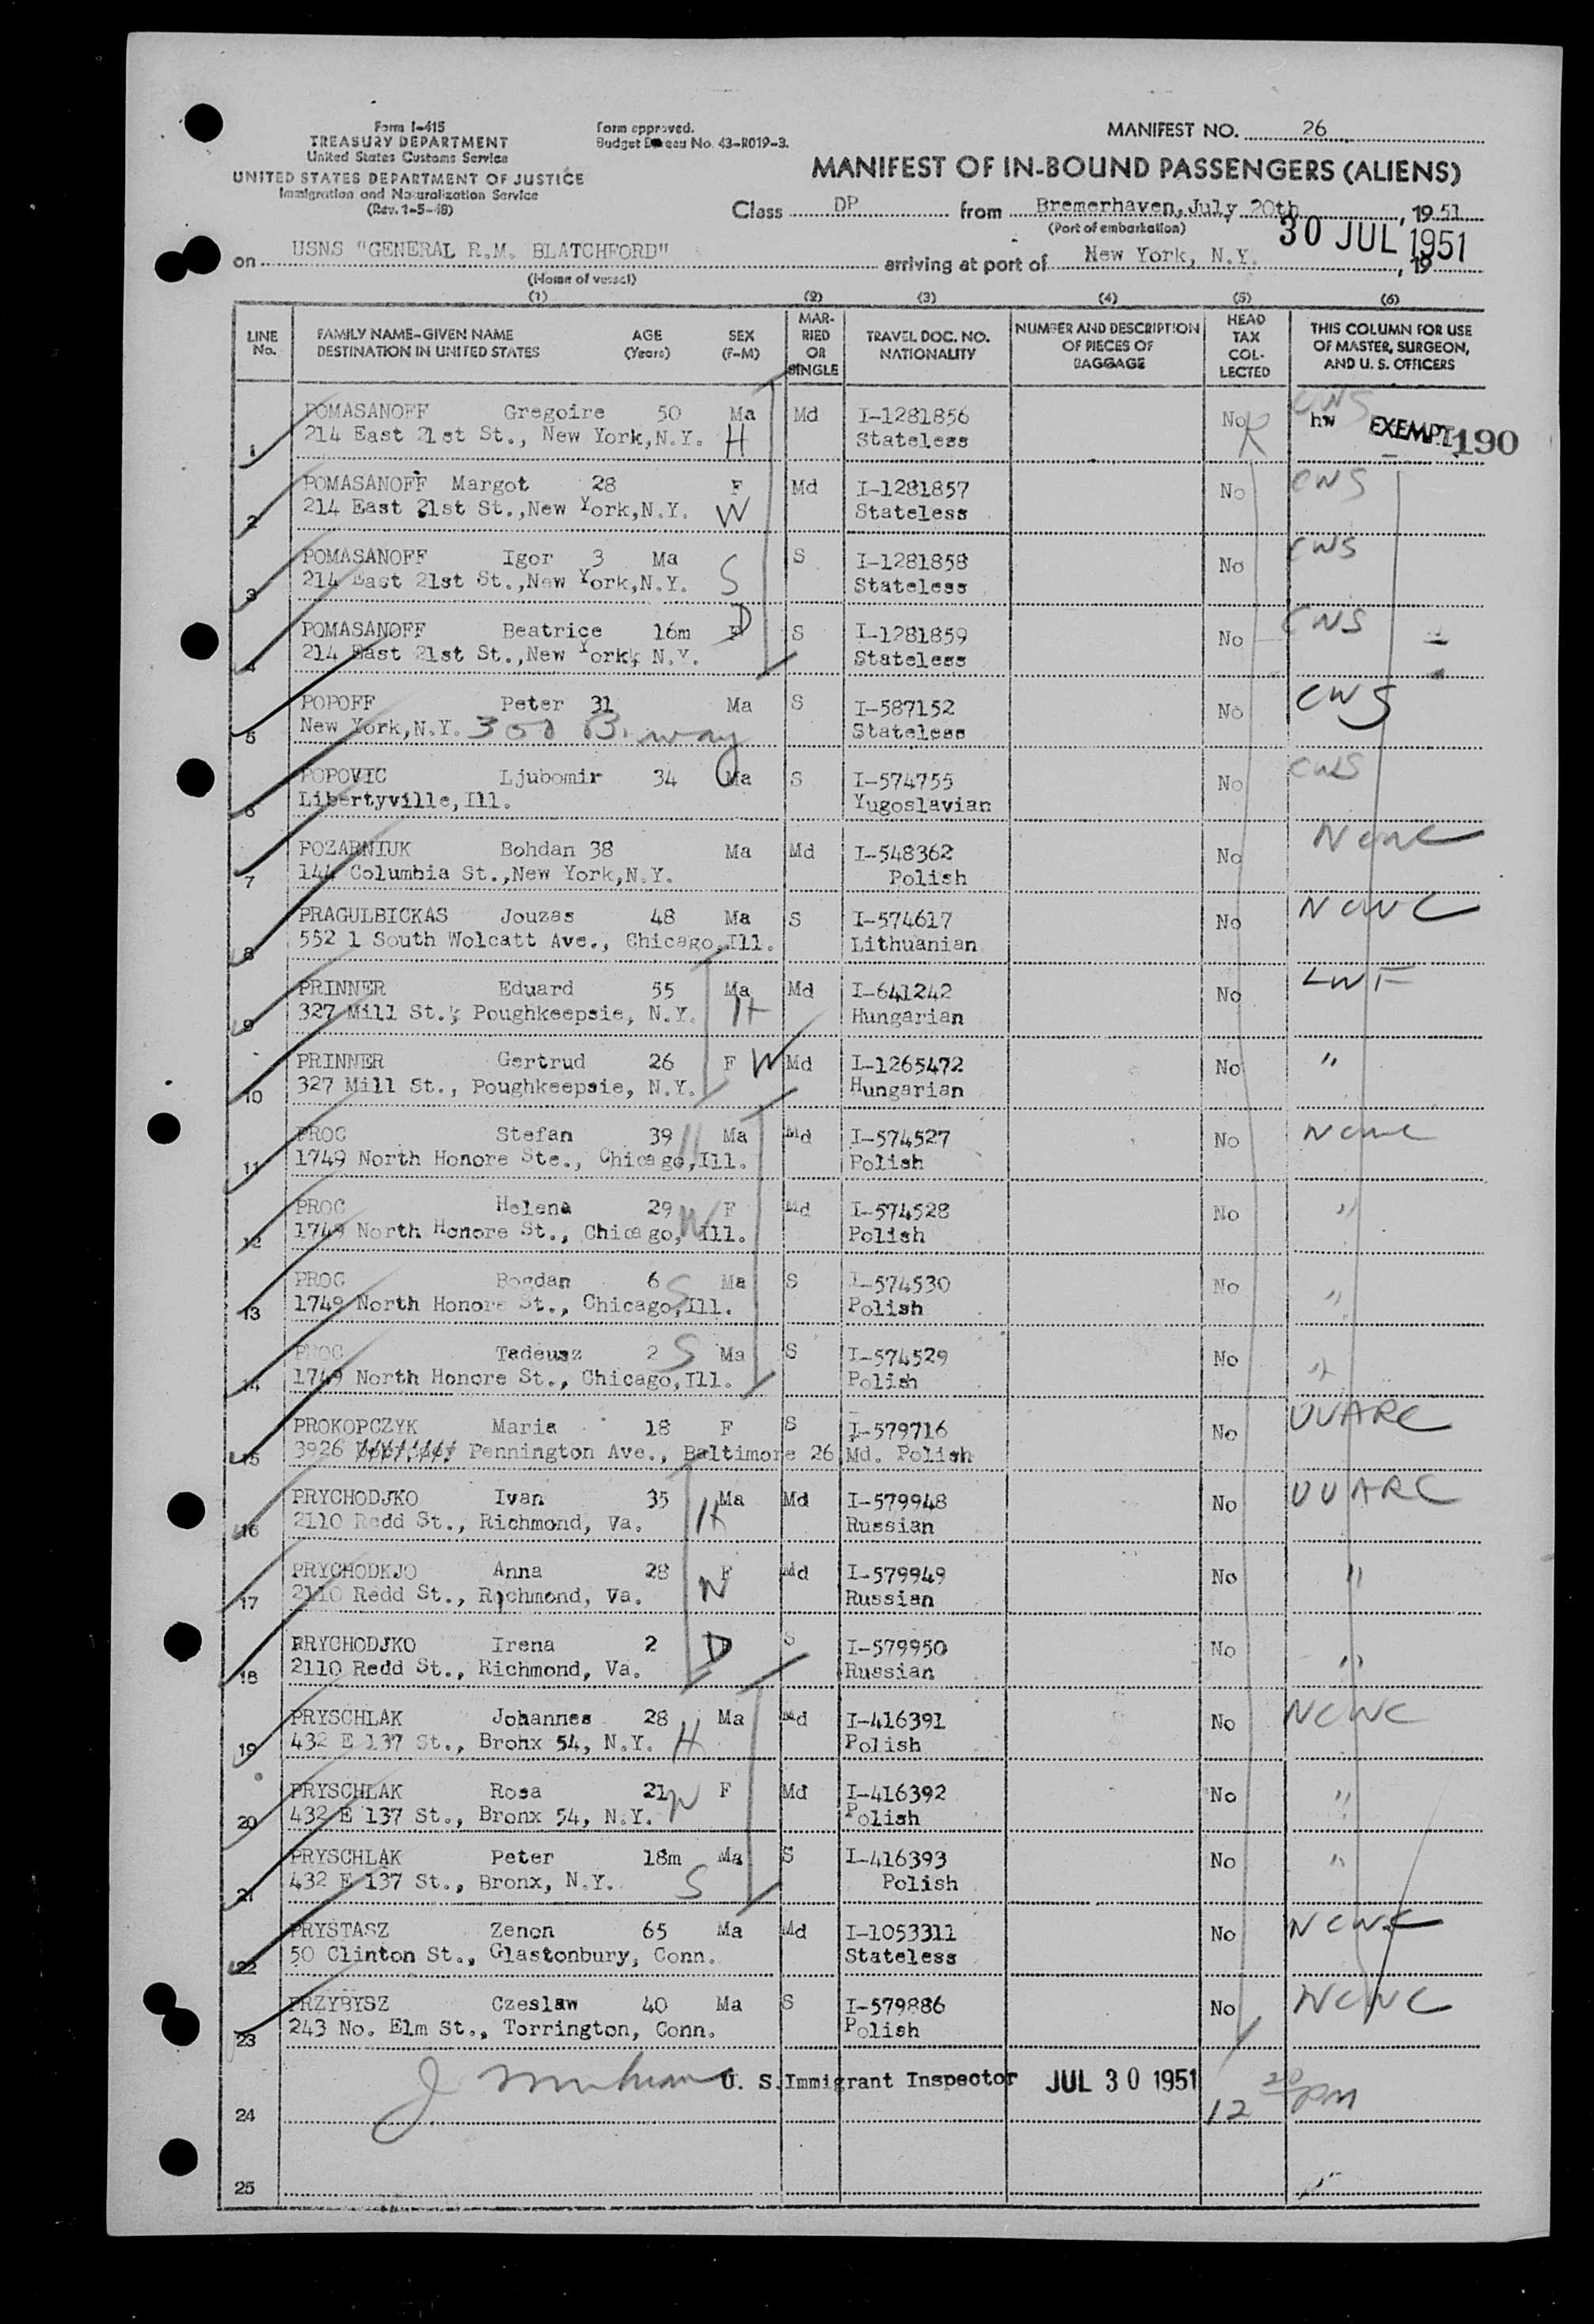 Form I-415
TREASURY DEPARTMENT
United States Customs Service
UNITED STATES DEPARTMENT OF JUSTICE
Immigration and Naturalization Service
(Rev. 1-5-48)
Form approved.
Budget Bureau No. 43-R019-3.
MANIFEST NO. 26
MANIFEST OF IN-BOUND PASSENGERS (ALIENS)
Class DP from Bremerhaven, July 20th, 1951
(Port of embarkation)
30 JUL 1951
on USNS "GENERAL R.M. BLATCHFORD" arriving at port of New York, N.Y., 19
(Name of vessel)
(1) (2) (3) (4) (5) (6)
LINE No. FAMILY NAME-GIVEN NAME DESTINATION IN UNITED STATES AGE (Years) SEX (F-M) MARRIED OR SINGLE TRAVEL DOC. NO. NATIONALITY NUMBER AND DESCRIPTION OF PIECES OF BAGGAGE HEAD TAX COLLECTED THIS COLUMN FOR USE OF MASTER, SURGEON, AND U. S. OFFICERS
1 POMASANOFF Gregoire 50 Ma Md I-1281856 No CWS hw EXEMPT 190
214 East 21st St., New York,N.Y. H Stateless
2 POMASANOFF Margot 28 F Md I-1281857 No CWS
214 East 21st St.,New York,N.Y. W Stateless
3 POMASANOFF Igor 3 Ma S I-1281858 No CWS
214 East 21st St.,New York,N.Y. S Stateless
4 POMASANOFF Beatrice 16m F D S I-1281859 No CWS
214 East 21st St.,New York, N.Y. Stateless
5 POPOFF Peter 31 Ma S I-587152 No CWS
New York,N.Y. 300 B.way Stateless
6 POPOVIC Ljubomir 34 Ma S I-574755 No CWS
Libertyville,Ill. Yugoslavian
7 POZARNIUK Bohdan 38 Ma Md I-548362 No NCWC
144 Columbia St.,New York,N.Y. Polish
8 PRAGULBICKAS Jouzas 48 Ma S I-574617 No NCWC
552 1 South Wolcatt Ave., Chicago,Ill. Lithuanian
9 PRINNER Eduard 55 Ma Md I-641242 No LWF
327 Mill St., Poughkeepsie, N.Y. H Hungarian
10 PRINNER Gertrud 26 F W Md I-1265472 No "
327 Mill St., Poughkeepsie, N.Y. Hungarian
11 PROC Stefan 39 H Ma Md I-574527 No NCWC
1749 North Honore Ste., Chicago,Ill. Polish
12 PROC Helena 29 W F Md I-574528 No "
1749 North Honore St., Chicago, Ill. Polish
13 PROC Bogdan 6 S Ma S I-574530 No "
1749 North Honore St., Chicago,Ill. Polish
14 PROC Tadeusz 2 S Ma S I-574529 No "
1749 North Honore St., Chicago,Ill. Polish
15 PROKOPCZYK Maria 18 F S I-579716 No UUARC
3926 Pennington Ave., Baltimore 26,Md. Polish
16 PRYCHODJKO Ivan 35 Ma Md I-579948 No UUARC
2110 Redd St., Richmond, Va. H Russian
17 PRYCHODKJO Anna 28 F Md I-579949 No "
2110 Redd St., Rochmond, Va. W Russian
18 PRYCHODJKO Irena 2 D S I-579950 No "
2110 Redd St., Richmond, Va. Russian
19 PRYSCHLAK Johannes 28 Ma Md I-416391 No NCWC
432 E 137 St., Brohx 54, N.Y. H Polish
20 PRYSCHLAK Rosa 21 W F Md I-416392 No "
432 E 137 St., Bronx 54, N.Y. Polish
21 PRYSCHLAK Peter 18m Ma S I-416393 No "
432 E 137 St., Bronx, N.Y. S Polish
22 PRYSTASZ Zenon 65 Ma Md I-1053311 No NCWC
50 Clinton St., Glastonbury, Conn. Stateless
23 PRZYBYSZ Czeslaw 40 Ma S I-579886 No NCWC
243 No. Elm St., Torrington, Conn. Polish
U. S. Immigrant Inspector JUL 30 1951 12 20 PM
24
25